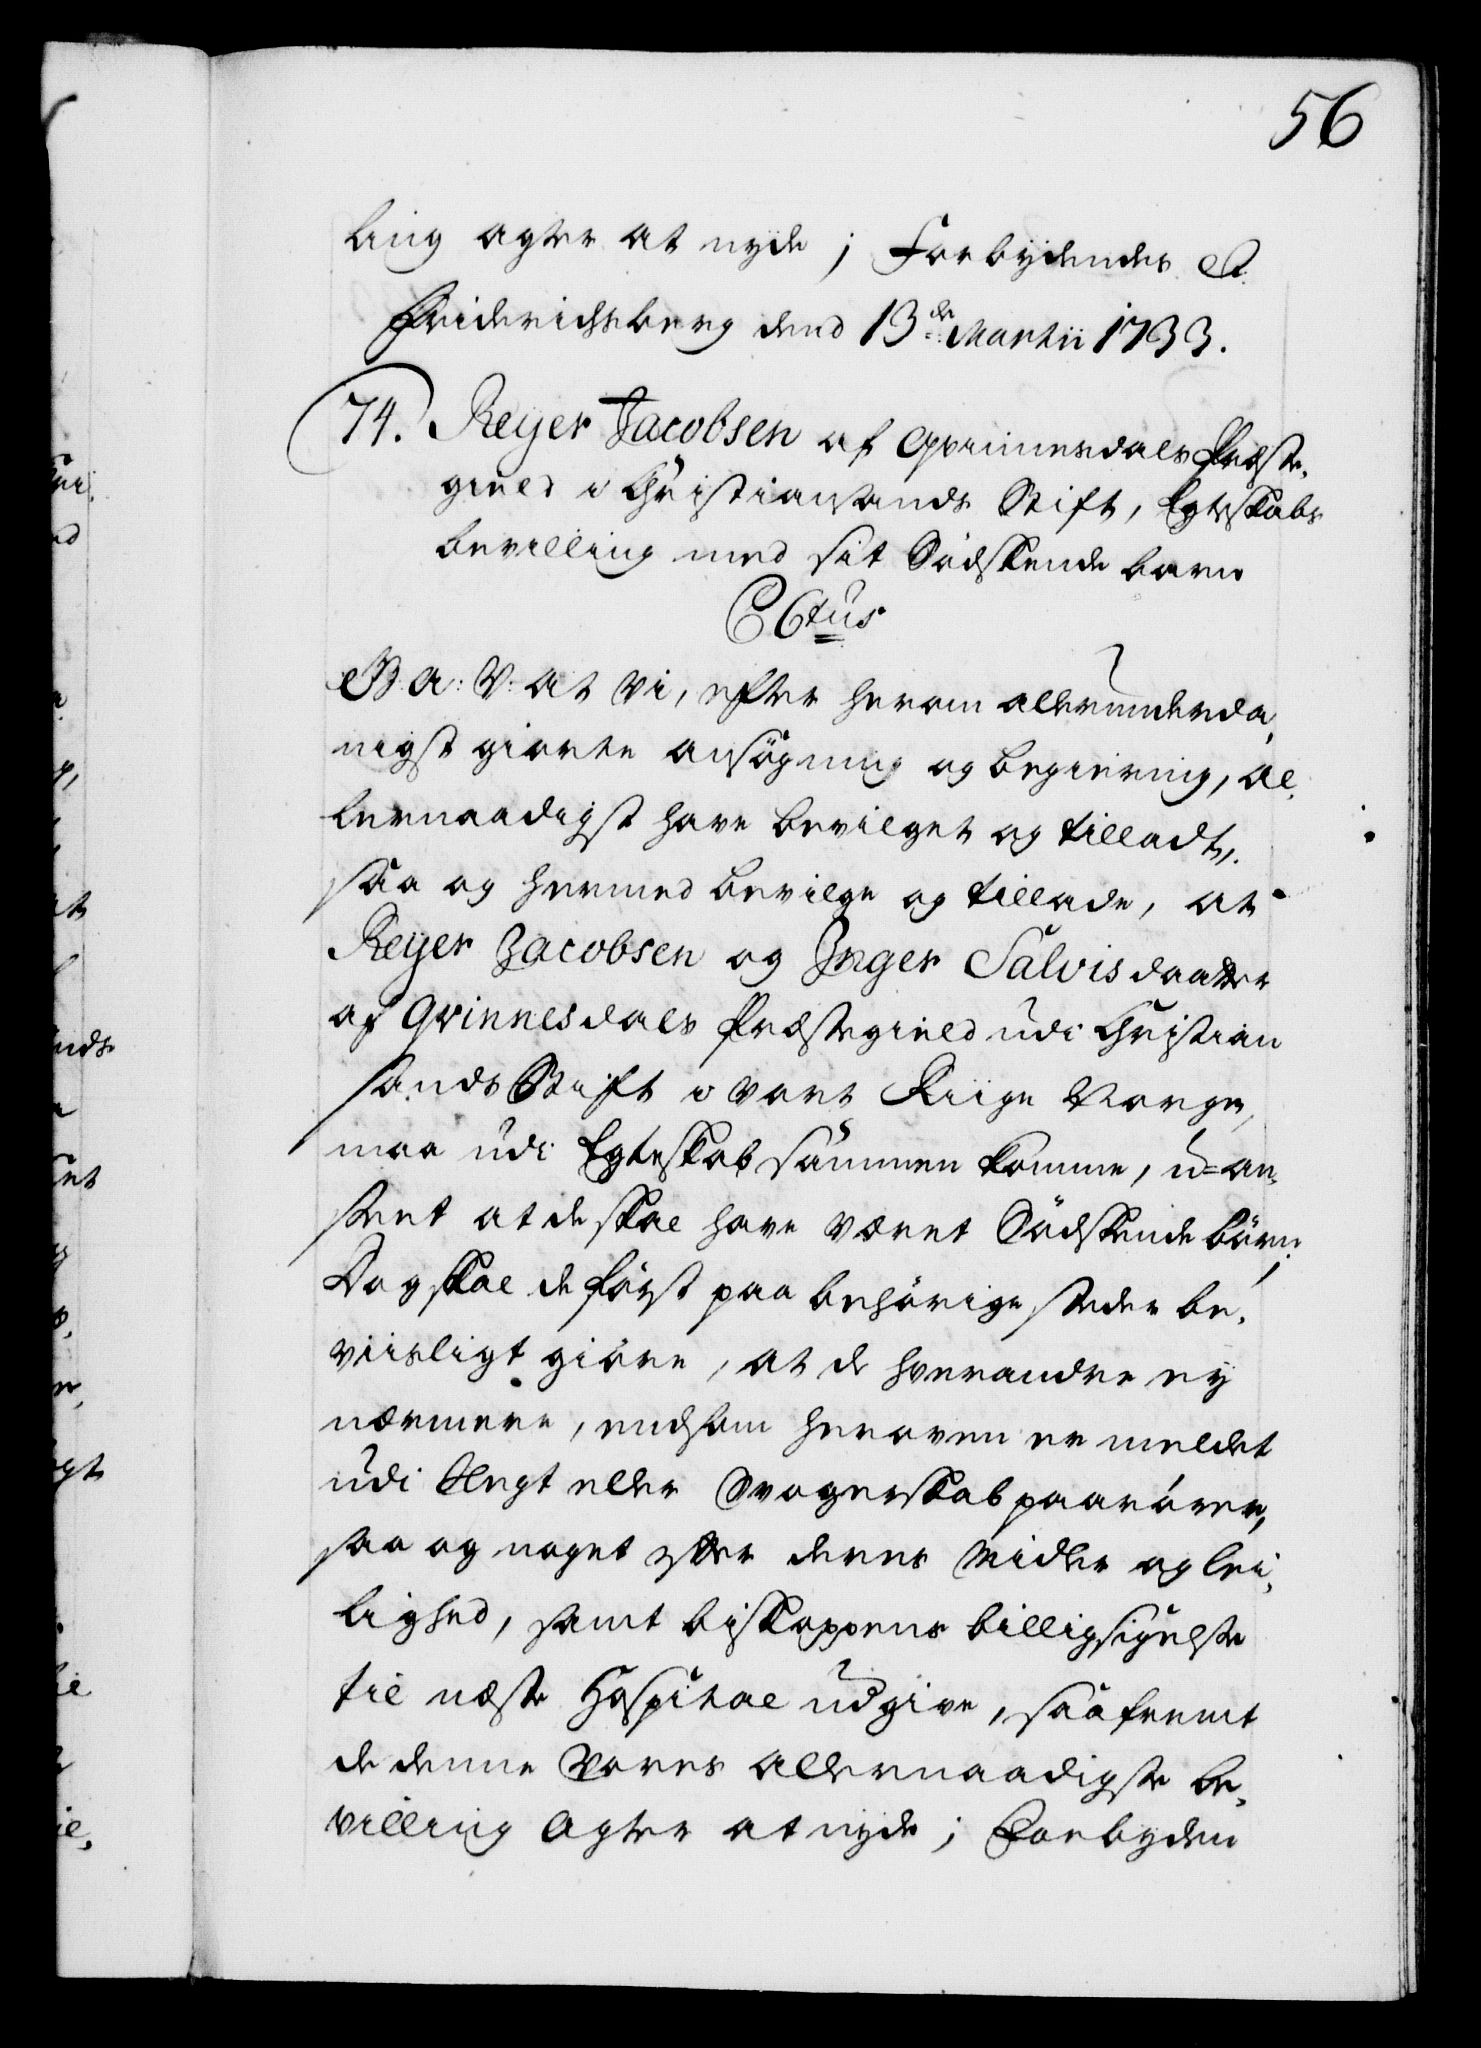 56
ling agter at nyde; Forbydendes &
Friderichsberg dend 13de Martii 1733.
74. Reyer Jacobsen af Qvinnesdals Præste-
gield i Christiansands Stift, Egteskabs
bevilling med sit Södskende barn
C6tus
G. A: V: at Vi, efter herom allerunderda-
nigst giorte ansögning og begiering, al-
lernaadigst have bevilget og tilladt,
saa og hermed bevilge og tillade, at
Reyer Jacobsen og Inger Salvisdaatter
af Qvinnesdals Præstegield udi Christian
sands Stift i vort Riige Norge,
maa udi Egteskab sammen komme, u-an-
seet at de skal have været Södskende börn;
Dog skal de först paa behörige steder be-
viisligt giöre, at de hverandre ey
nærmere, end som heroven er meldet
udi Slegt eller Svogerskab paarörer,
saa og noget efter deres Midler og lei-
lighed, samt biskoppens billigsigelse
til næste Hospital udgive, saafremt
de denne Vores allernaadigste be-
villing agter at nyde; Forbyden